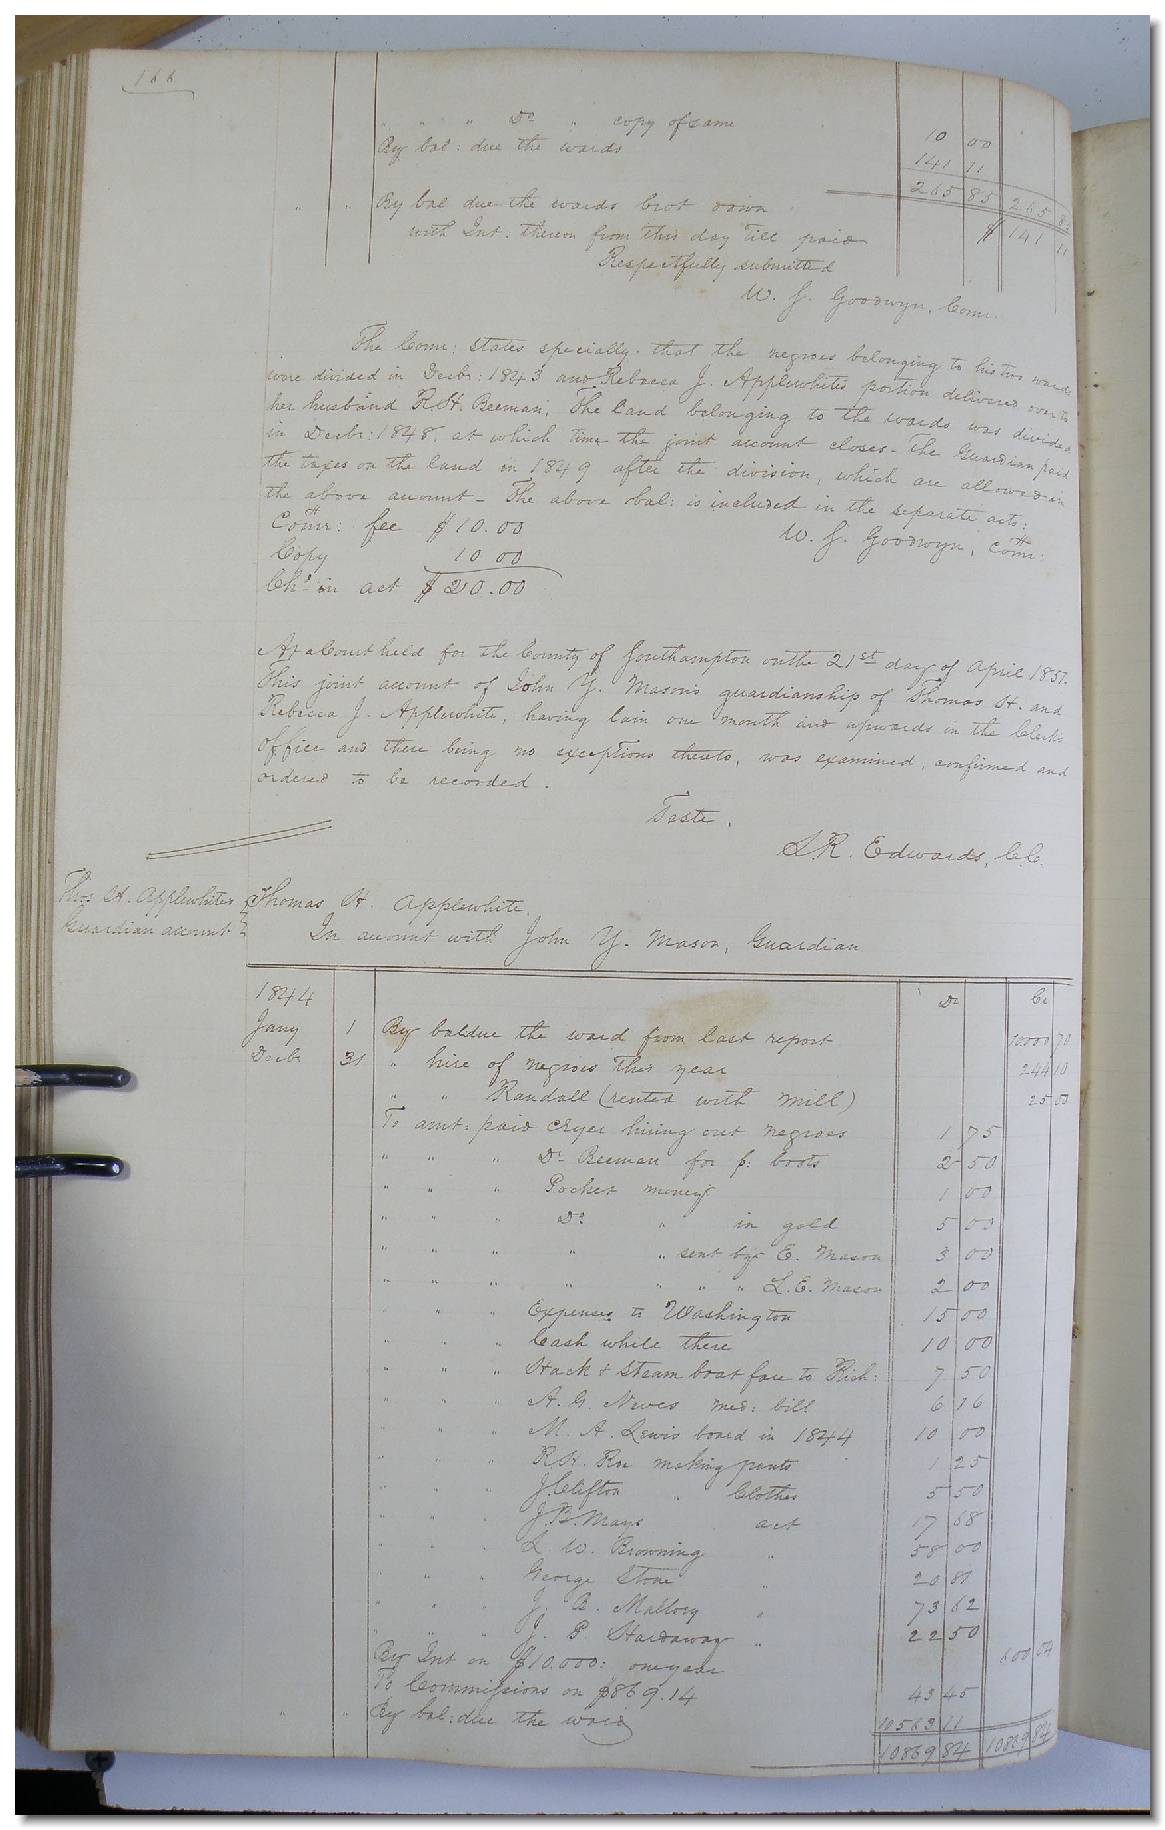 166
" " " Do " copy of same 10 00
By bal: due the wards 141 11
265 85 265 85
" " By bal due the wards brot down $ 141 11
with Int. thereon from this day till paid
Respectfully submitted
W. J. Goodwyn, Comr.
The Comr: states specially that the negroes belonging to his two wards
were divided in Decbr: 1843 and Rebecca J. Applewhites portion delivered over to
her husband R. H. Beeman; The land belonging to the wards was divided
in Decbr: 1848, at which time the joint account closes - The Guardian paid
the taxes on the land in 1849 after the division, which are allowed in
the above account - The above bal: is included in the separate acts:
Comr: fee $10.00 W. J. Goodwyn, Comr:
Copy 10 00
Chd in act $20.00
At a Court held for the County of Southampton on the 21st day of April 1851.
This joint account of John Y. Mason's guardianship of Thomas H. and
Rebecca J. Applewhite, having lain one month and upwards in the Clerk's
office and there being no exceptions thereto, was examined, confirmed and
ordered to be recorded.
Teste,
L.R. Edwards, C.C.
Thos H. Applewhites
Guardian account
Thomas H. Applewhite
In account with John Y. Mason, Guardian
1844 Dr Cr
Jany 1 By bal due the ward from last report 10000 70
Decbr 31 " hire of negroes this year 244 10
" " Randall (rented with mill) 25 00
To amt: paid cryer hiring out negroes 1 75
" " " Dr Beeman for p: boots 2 50
" " " Pocket money 1 00
" " " Do " in gold 5 00
" " " " " sent by E. Mason 3 00
" " " " " " " L. E. Mason 2 00
" " " Expenses to Washington 15 00
" " " Cash while there 10 00
" " " Hack & Steam boat fare to Rich: 7 50
" " " A. G. med: bill 6 16
" " " M. A. Lewis board in 1844 10 00
" " " R. H. making pants 1 25
" " " J. Clifton " Clothes 5 50
" " " J. B. Mays act 17 68
" " " L. W. Browning " 58 00
" " " George Stone " 20 81
" " " J. B. Mallory " 73 62
" " " J. P. Hardaway " 22 50
By Int on $10.000: one year 600 04
To Commissions on $869.14 43 45
" " By bal: due the ward 10563 11
10869 84 10869 84